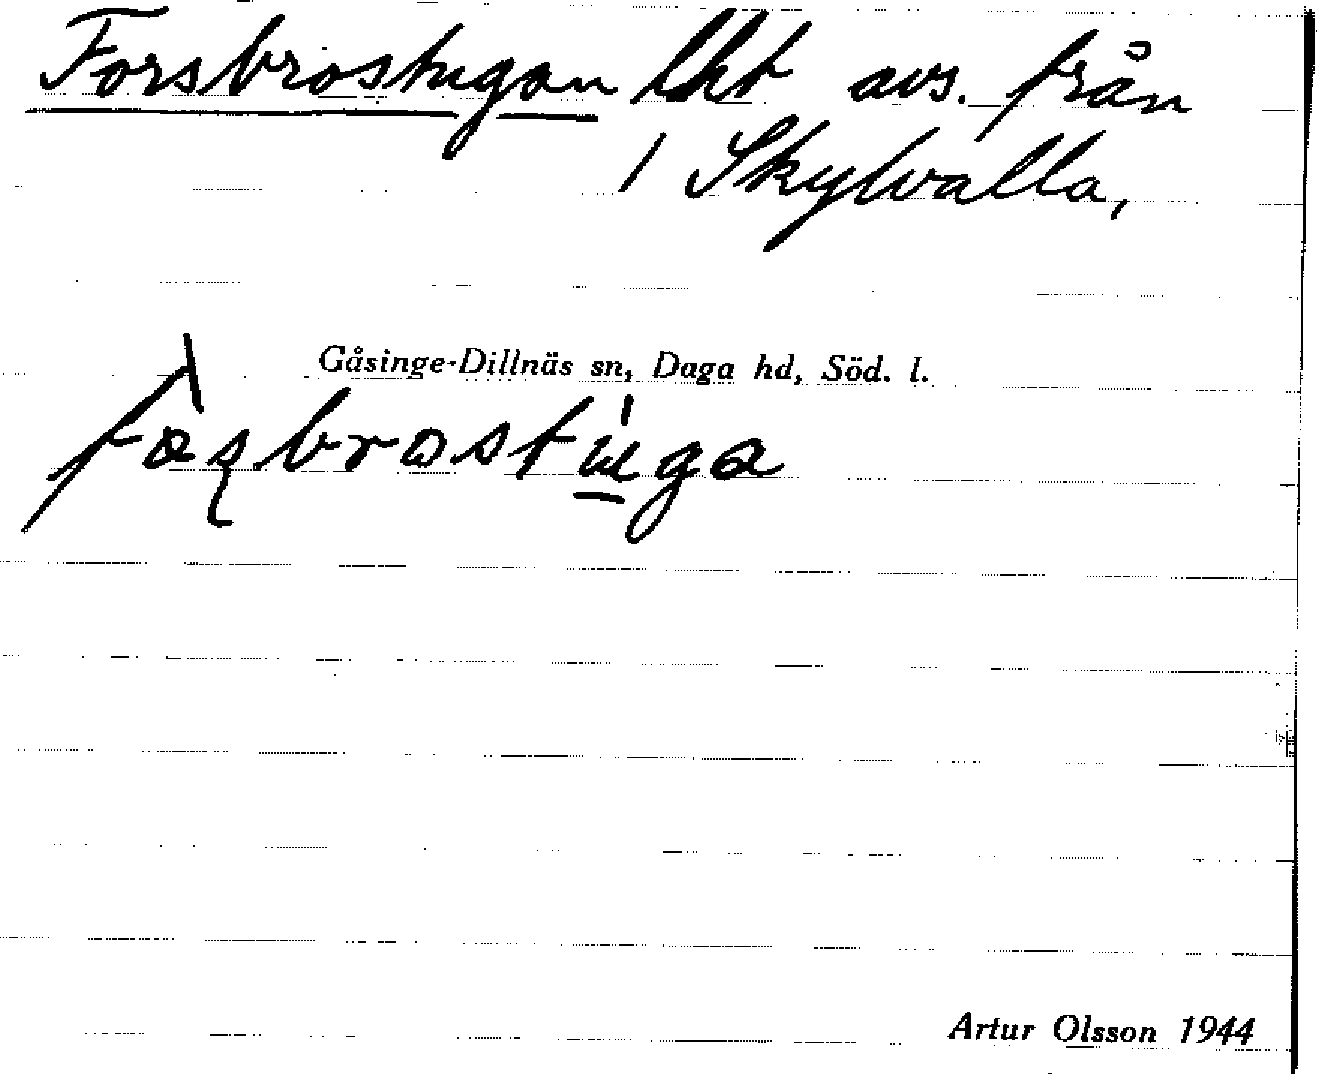 Forsbrostugan lht avs. från
1 Skylvalla,
Gåsinge-Dillnäs sn, Daga hd, Söd. l.
Artur Olsson 1944